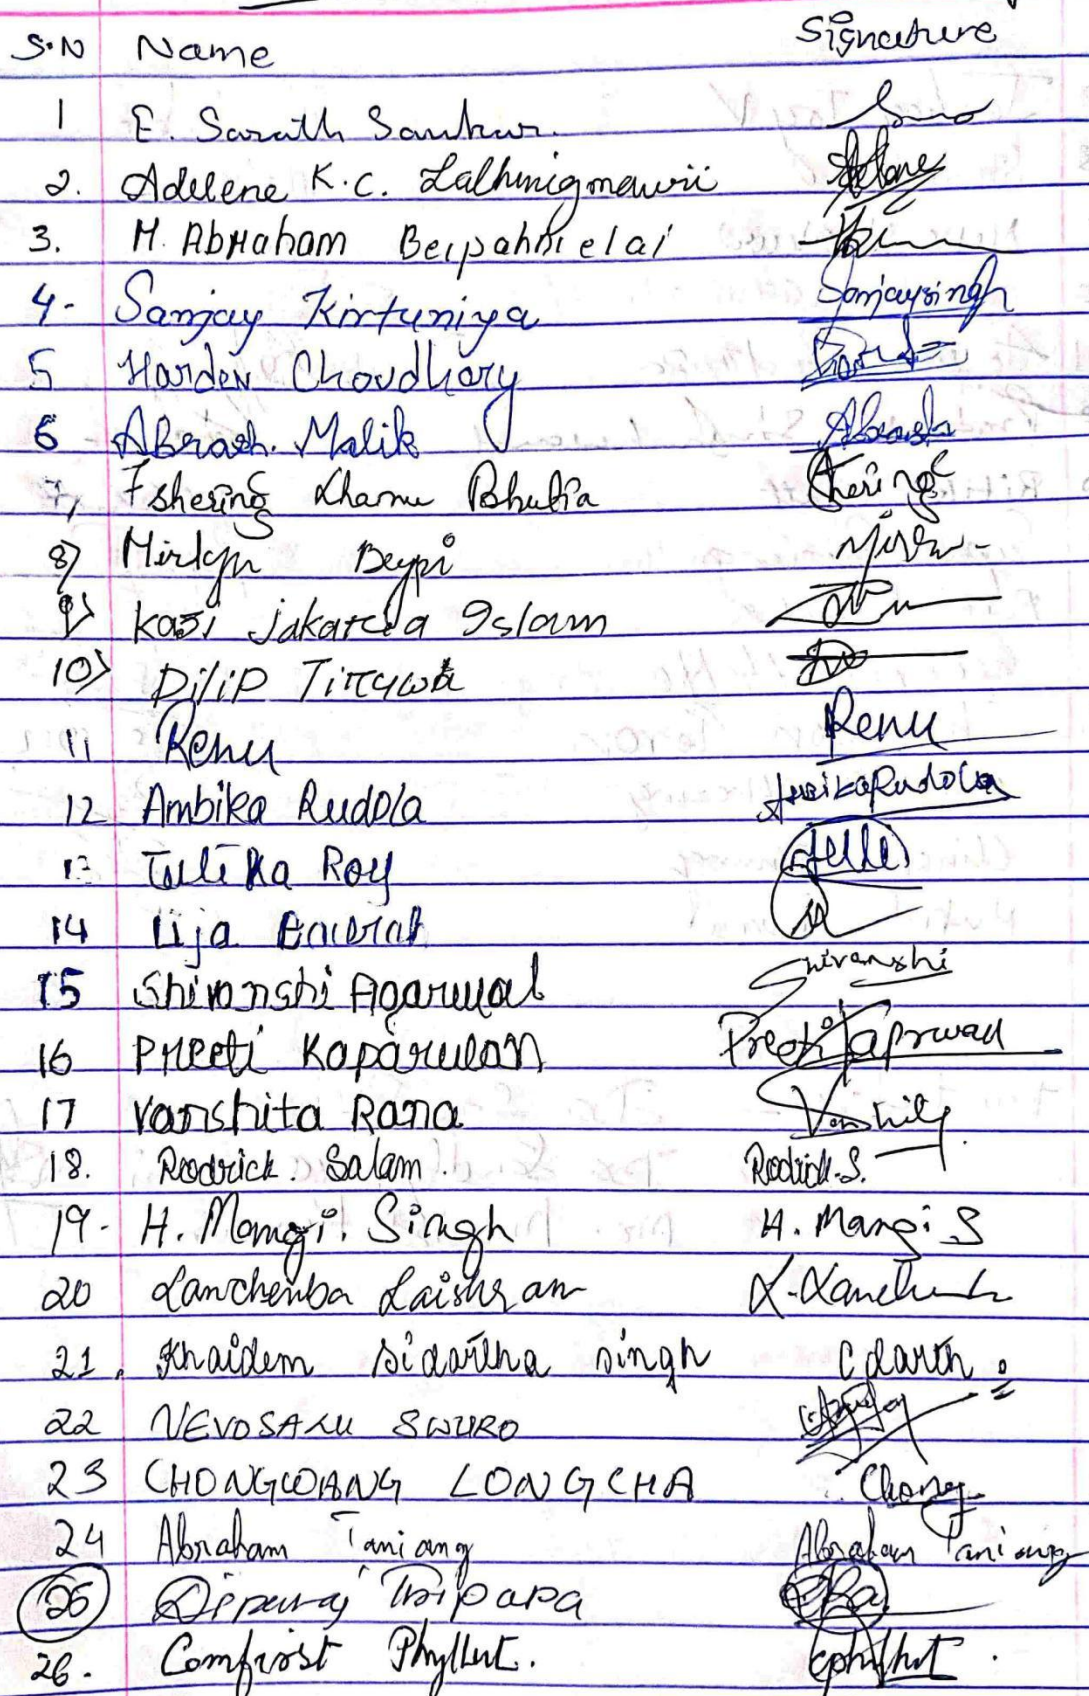 S.N Name Signature
1 E. Sarath Sankur.
2. Adelene K.C. Lalhmigmawii
3. H. AbHaham Beipahhielai
4- Sanjay Kirtuniya Sanjaysingh
5 Harden Choudhary
6 Abrash. Malik Abrash
7, Tshering Lhamu Bhutia Tshering
8) Mirlyn Beypi
9) kazi jakaria Islam
10) Dilip Tirruwa
11 Renu Renu
12 Ambika Rudola AmbikaRudola
13 Tulika Roy
14 Lija
15 Shivanshi Agarwal Shivanshi
16 Preeti Kaparwan Preeti Kaparwan
17 Vanshita Rana Vanshita
18. Rodrick. Salam. Rodrick.S.
19- H. Mangi. Singh H. Mangi S
20 Lanchenba Laishram L. Lanchenba
21. Khaidem sidartha singh Cdarth
22 NEVOSALU SWURO
23 CHONGWANG LONGCHA Chong
24 Abraham Taniang Abraham Taniang
25 Tripura
26. Comfirst Phyllut. Cphyllut